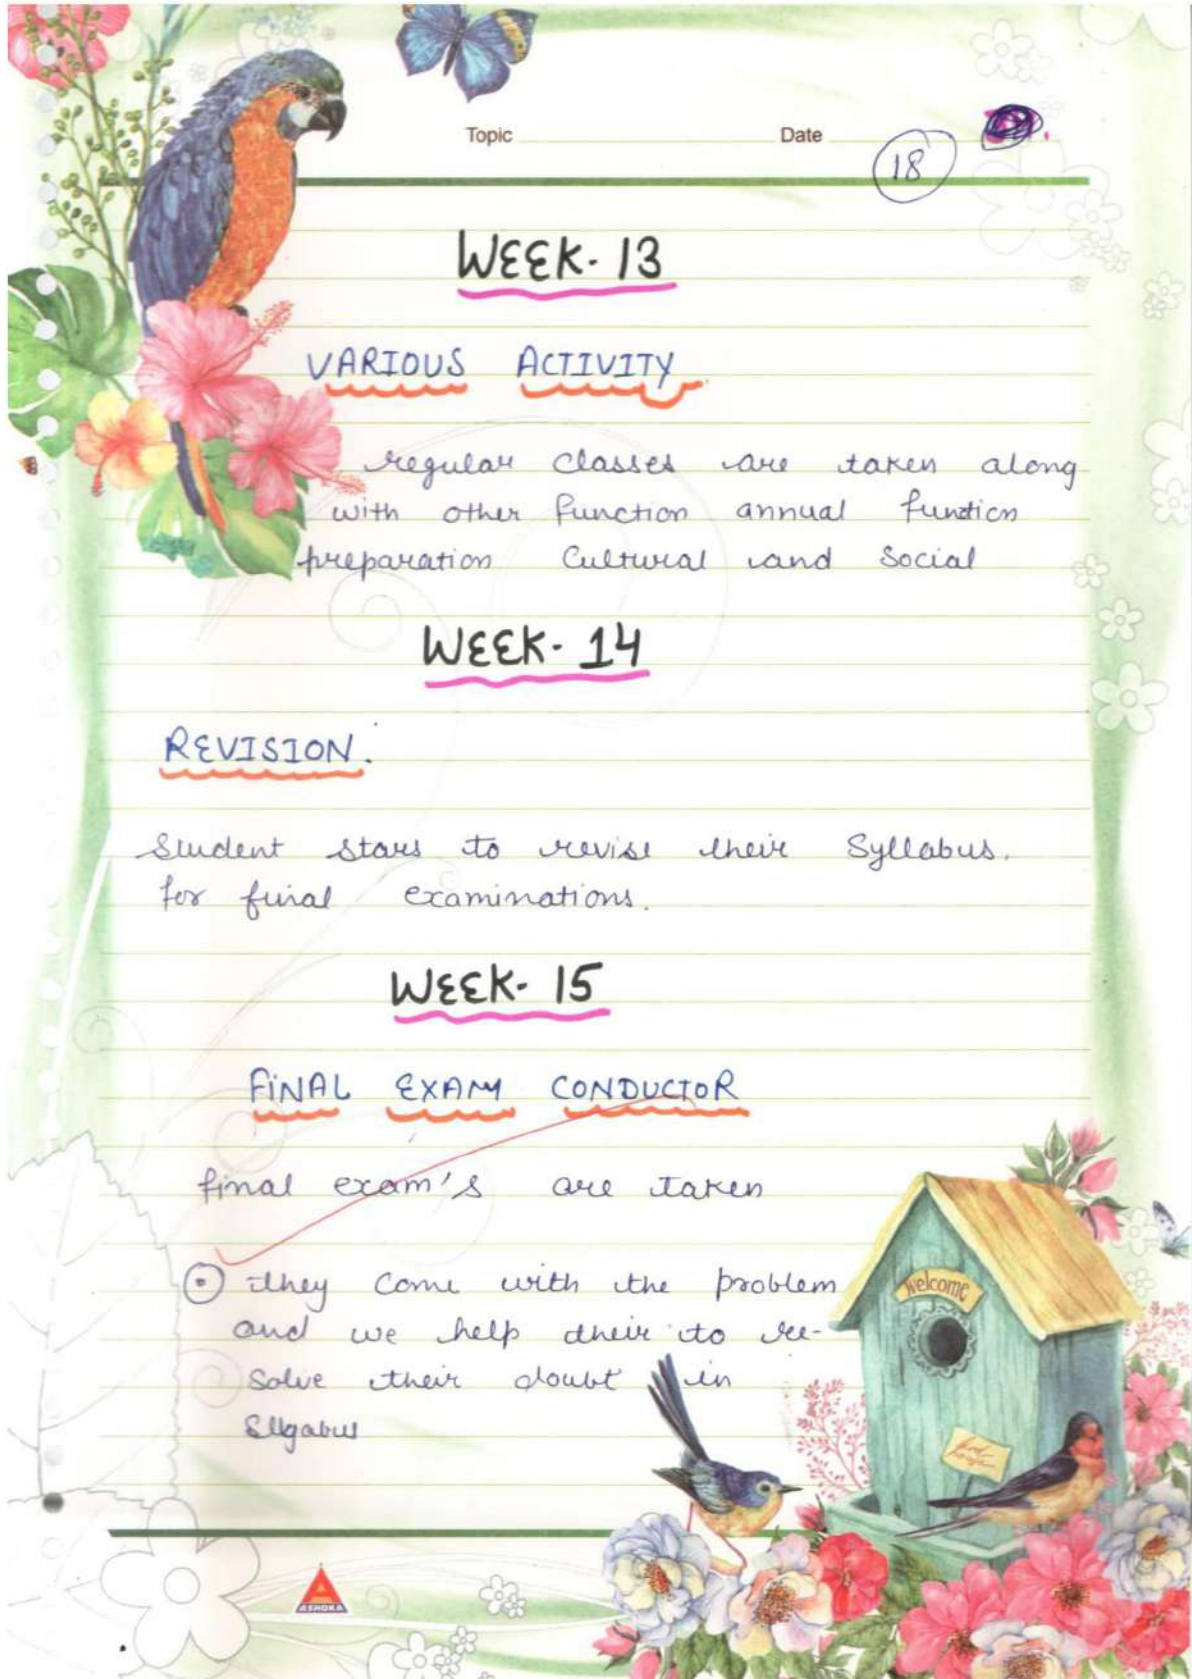 Topic
Date
18
WEEK-13
VARIOUS ACTIVITY
regular classes are taken along
with other function annual function
preparation Cultural and Social
WEEK-14
REVISION.
Student stars to revise their Syllabus.
for final examinations.
WEEK-15
FINAL EXAM CONDUCTOR
final exam's are taken
they come with the problem
and we help their to re-
solve their doubt in
welcome
ASHOKA